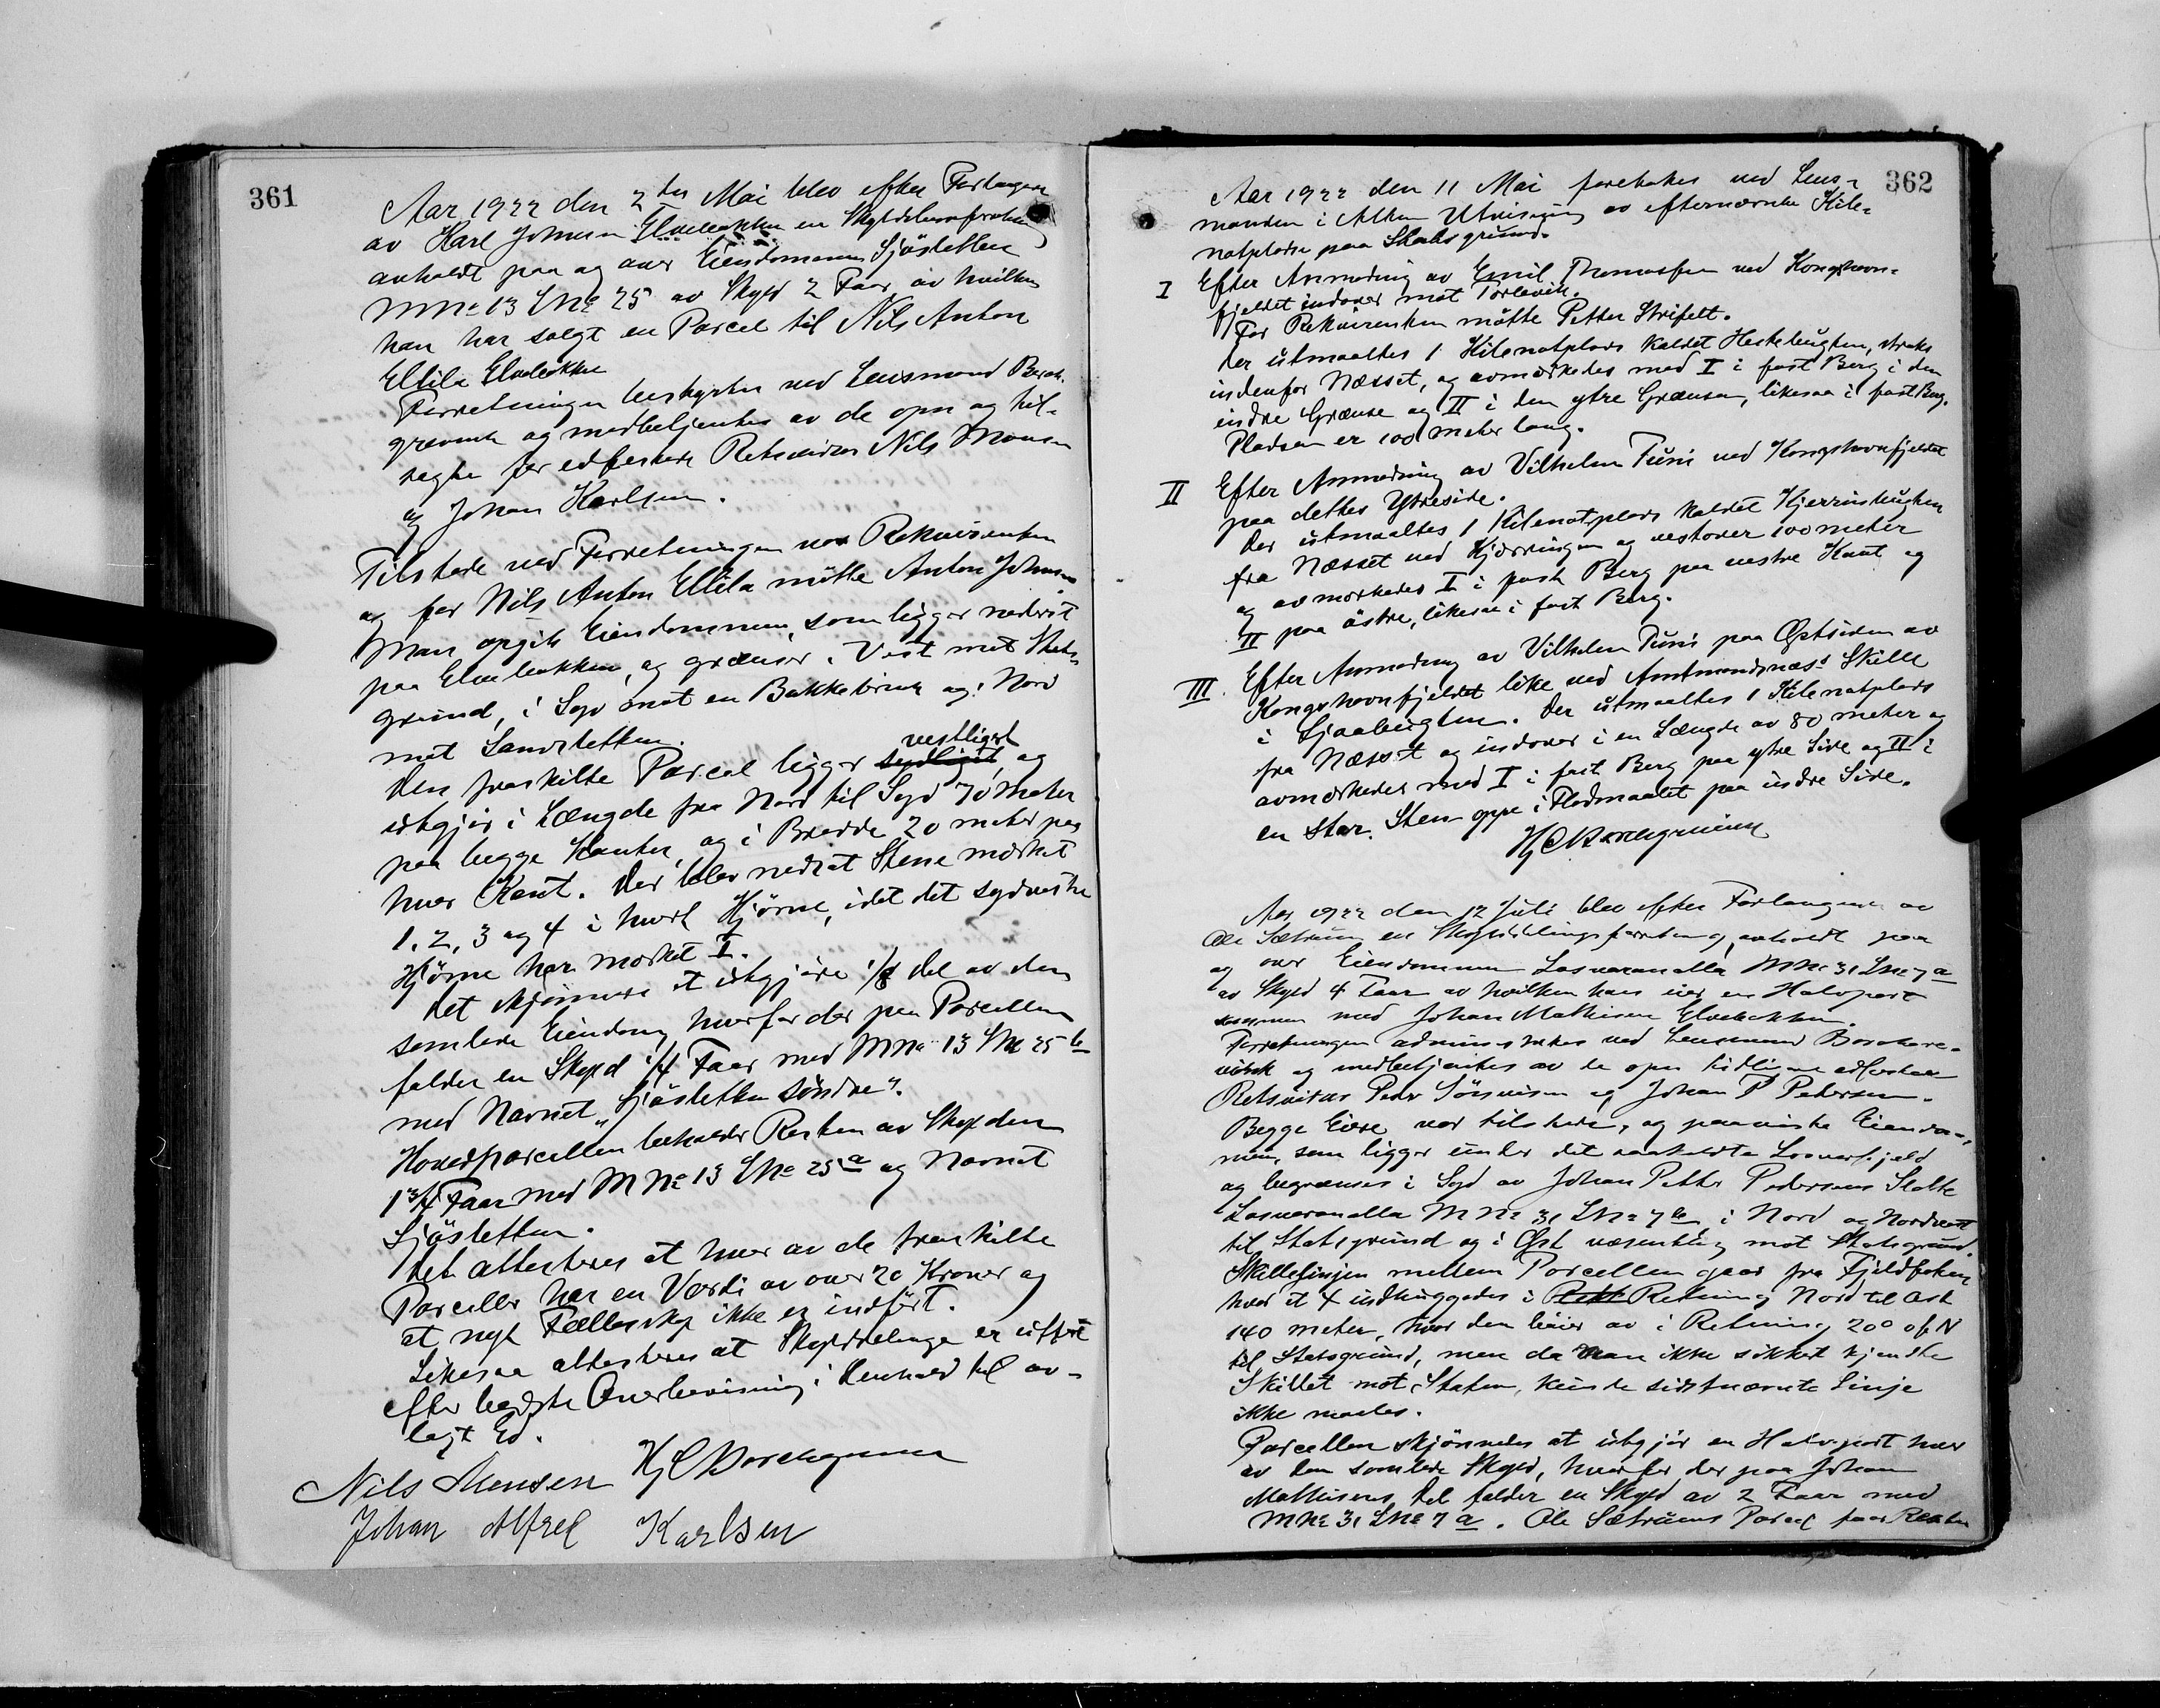 361
Aar 1922 den 2den Mai blev efter Forlangende
av Karl Johnsen Elvebakken en Skylddelingsforretning
avholdt paa og over Eiendommen Sjösletten
M No 13 L No 25 av Skyld 2 Faar, av hvilken
han har solgt en Parcel til Nils Anton
Ellila Elvebakken
Forretningen bestyrtes ved Lensmand Borch-
grevink og medbetjentes av de opn og til-
sagte før edfestede Retsvidner Nils Monsen
og Johan Karlsen.
Tilstede ved Forretningen var Rekvirenten
og for Nils Anton Ellila mötte Anton Johnsen
Man opgik Eiendommen, som ligger nederst
paa Elvebakken, og grænser i Vest mot Stats-
grund, i Syd mot en Bakkebrink og i Nord
mot Sandsletten.
vestligst
Den fraskilte Parcel ligger sydligst, og
utgjör i Længde fra Nord til Syd 70 Meter
paa begge Kanter, og i Bredde 20 meter paa
hver Kant. Der blev nedsat Stene merket
1, 2, 3 og 4 i hvert Hjörne, idet det sydvestre
Hjörne har merket I.
Det skjönnedes at utgjöre 1/8 del av den
samlede Eiendom, hvorfor der paa Parcellen
falder en Skyld 1/4 Faar med M No 13 L No 25 b
med Navnet „Sjösletten söndre".
Hovedparcellen beholder Resten av Skylden
1 3/4 Faar med M No 13 L No 25 a og Navnet
Sjösletten.
Det attesteres at hver av de fraskilte
Parceller har en Værdi av over 20 Kroner og
at nyt Fællesskap ikke er indfört.
Likesaa attesteres at Skylddelingen er utfört
efter bedste Overbevisning i Henhold til av-
lagt Ed.
Hj C Borchgrevink
Nils Monsen
Johan Alfred Karlsen
362
Aar 1922 den 11 Mai foretokes ved Lens-
manden i Alten Utvisning av efternævnte Kile-
notpladse paa Statsgrund.
I Efter Anmodning av Emil Thomassen ved Kongshavn-
fjeldet indover mot Torlevik.
For Rekvirenten mötte Petter Strifelt.
Der utmaaltes 1 Kilenotplads kaldet Hestebugten, straks
indenfor Næsset, og avmerkedes med I i fast Berg i den
indre Grænse og II i den ytre Grænse, likesaa i fast Berg.
Pladsen er 100 meter lang.
II Efter Anmodning av Vilhelm Furu ved Kongshavnfjeldet
paa dettes Ytreside.
Der utmaaltes 1 Kilenotplads kaldet Kjerringbugten
fra Næsset ved Kjerringen og vestover 100 meter
og avmerkedes I i fast Berg paa vestre Kant og
II paa östre, likesaa i fast Berg.
III. Efter Anmodning av Vilhelm Furu paa Østsiden av
Kongshavnfjeldet like ved Amtmandsnæs's Skille
i Sjaabugten. Der utmaaltes 1 Kilenotplads
fra Næsset og indover i en Længde av 80 meter og
avmerkedes med I i fast Berg paa ytre Side og II i
en stor Sten oppe i Flodmaalet paa indre Side.
Hj C Borchgrevink
Aar 1922 den 12 Juli blev efter Forlangende av
Ole Sætrum en Skylddelingsforretning avholdt paa
og over Eiendommen Lasvaranalla M No 31 L No 7 a
av Skyld 4 Faar av hvilken han eier en Halvpart
sammen med Johan Mathisen Elvebakken.
Forretningen administreres ved Lensmand Borchgre-
vink og medbetjentes av de opn tidligere edfestede
Retsvidner Peder Sörensen og Johan P Pedersen.
Begge Eiere var tilstede, og paaviste Eiendom-
men, som ligger under det saakaldte Lasvarfjeld
og begrænses i Syd av Johan Petter Pedersens Slaatte
Lasvaranalla M No 31 L No 7 b, i Nord og Nordvest
til Statsgrund og i Øst væsentlig mot Statsgrund.
Skillelinjen mellem Parcellen gaar fra Fjeldfoten
hvor et 4 indhuggedes i Rett Retning Nord til Ost
140 meter, hvor den böier av i Retning 20° ö f N
til Statsgrund, men da man ikke sikkert kjendte
Skillet mot Staten, kunde sidstnævnte Linje
ikke maales.
Parcellen skjönnedes at utgjör en Halvpart hver
av den samlede Skyld, hvorfor der paa Johan
Mathisens Del falder en Skyld av 2 Faar med
M No 31 L No 7 a. Ole Sætrums Parcel faar Resten